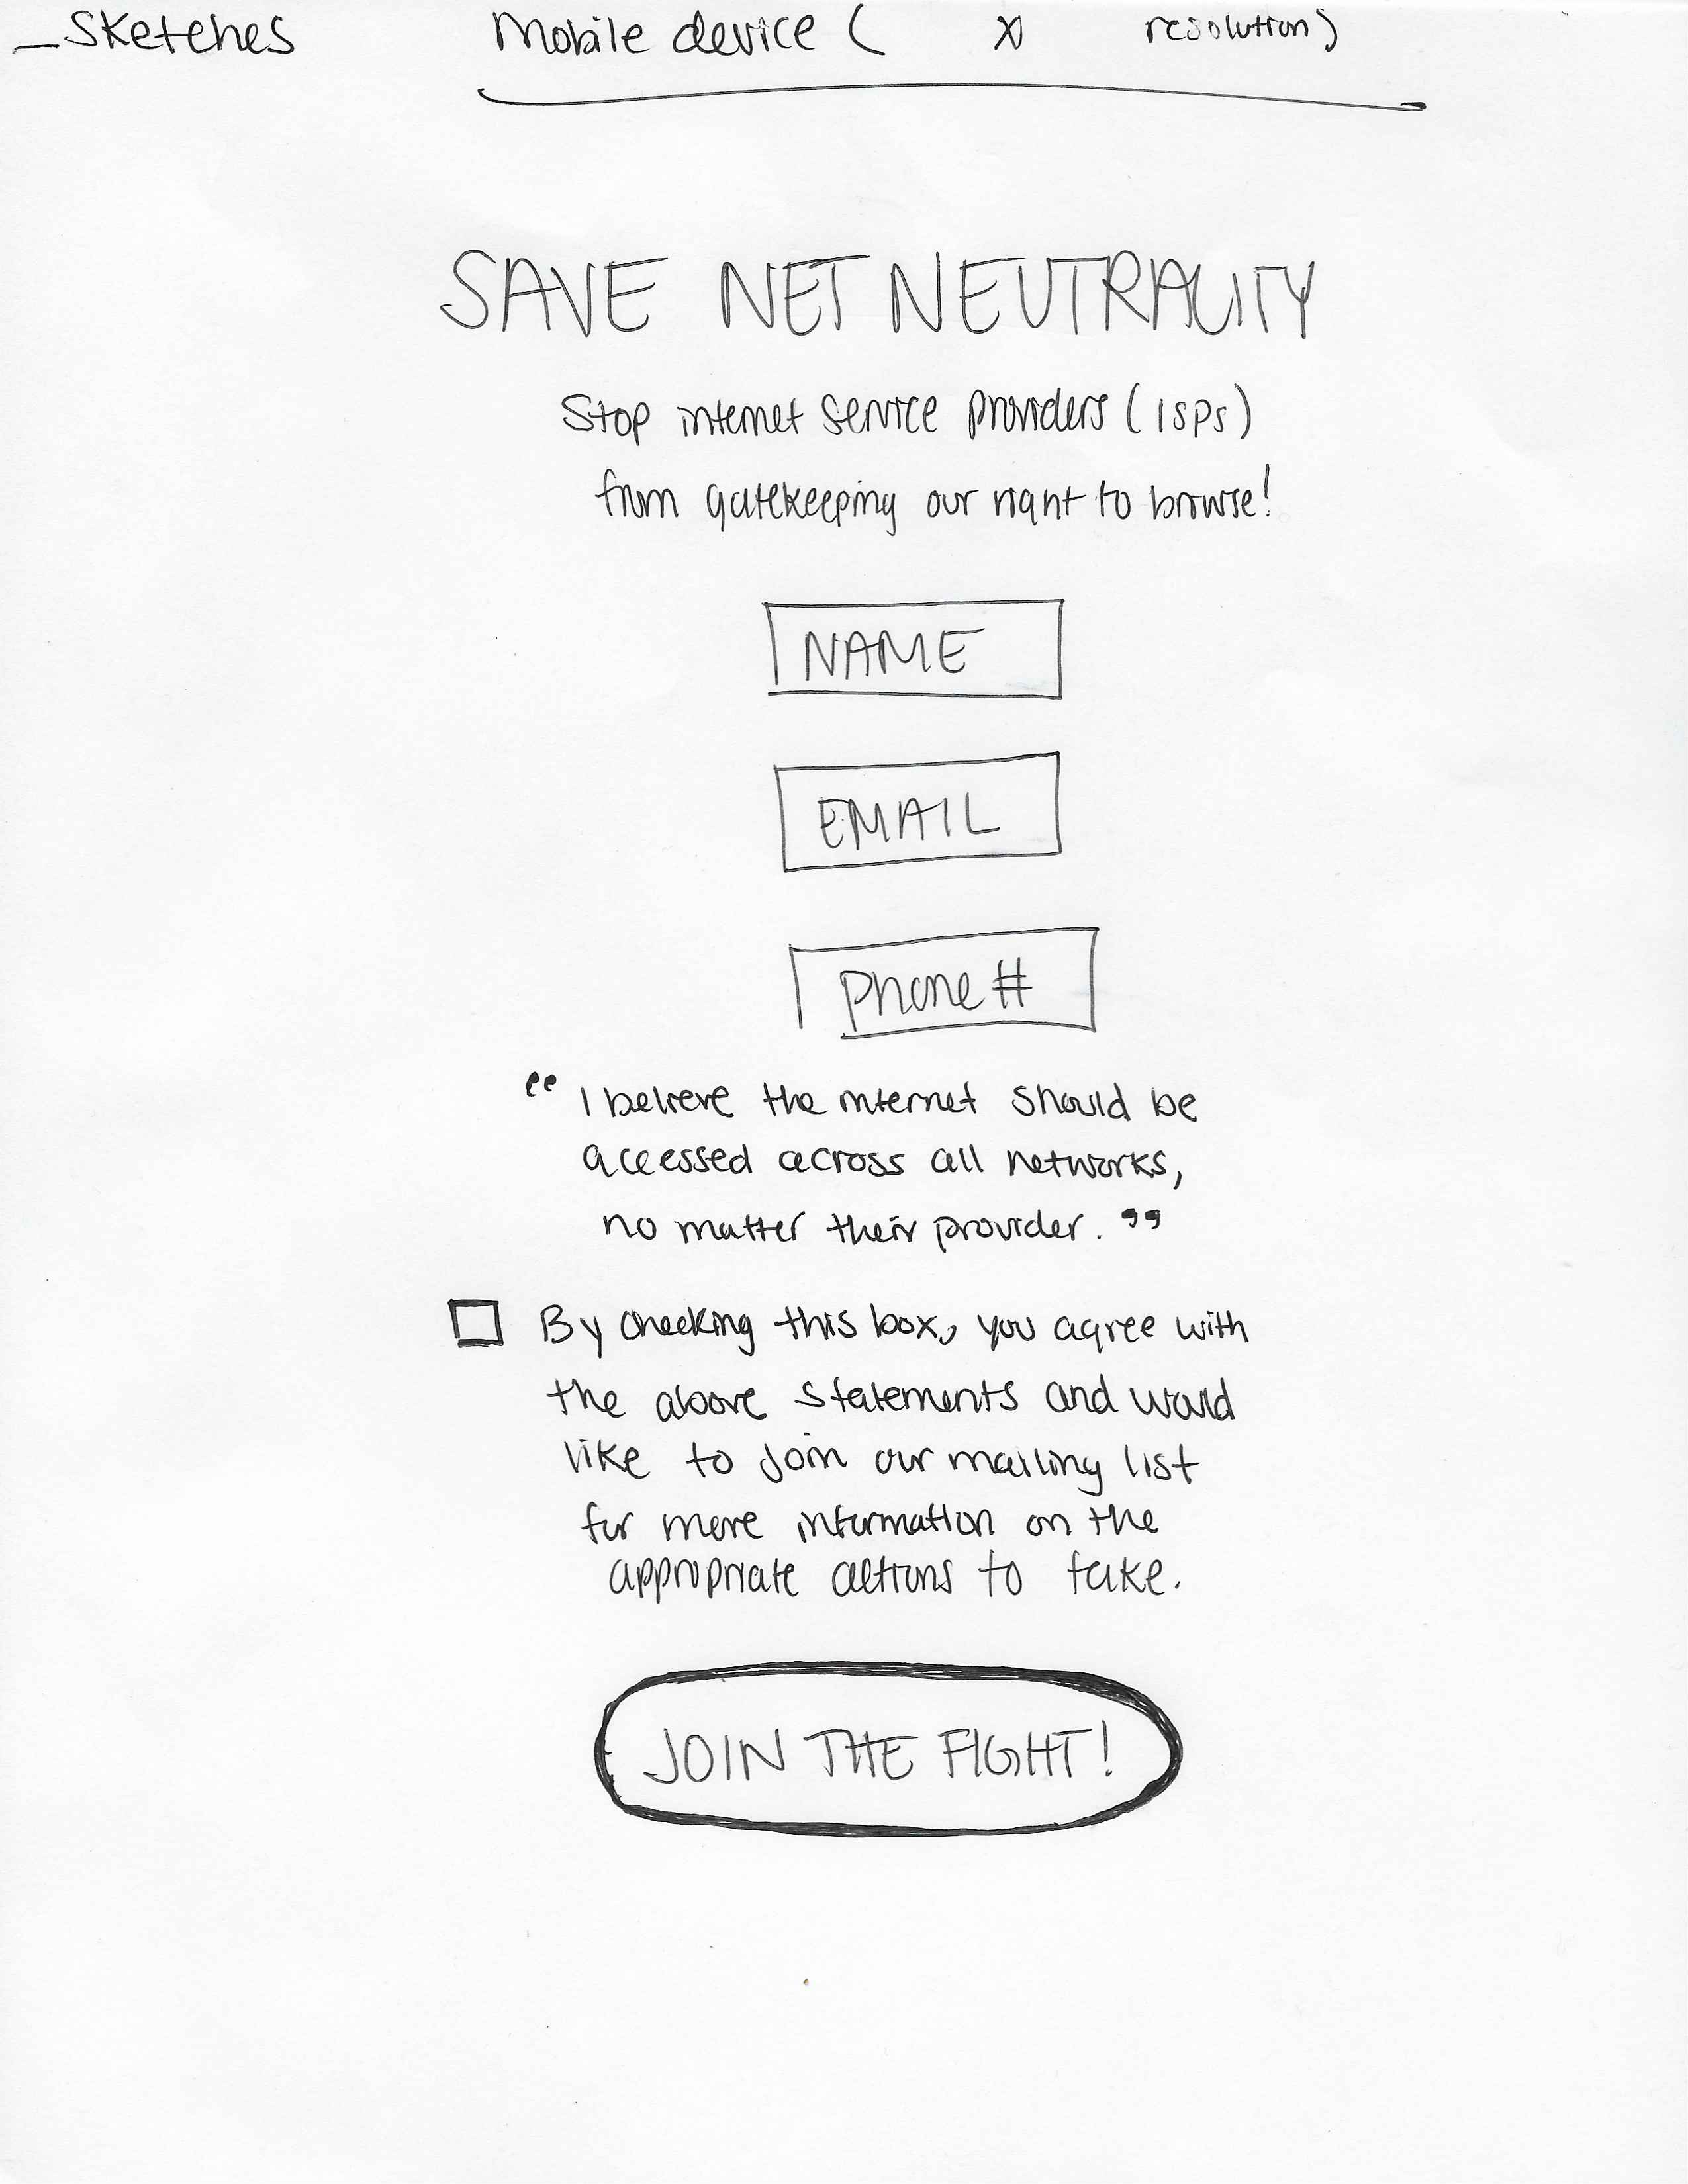 _Sketches Mobile device ( x resolution)
SAVE NET NEUTRALITY
Stop internet service providers (ISPs)
from gatekeeping our right to browse!
NAME
EMAIL
Phone #
“ I believe the internet should be
accessed across all networks,
no matter their provider. ”
By checking this box, you agree with
the above statements and would
like to join our mailing list
for more information on the
appropriate actions to take.
JOIN THE FIGHT!